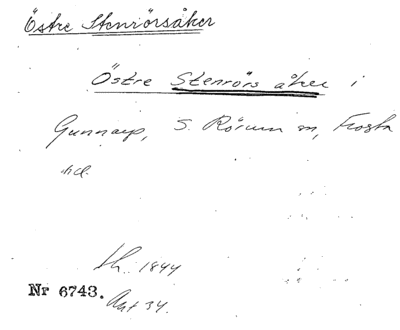 Östre Stenrörsåker
Östre Stenrörs åker i
Gunnarp, S. Rörum sn, Frosta
hd.
lh. 1844
Nr 6743. Akt 34.